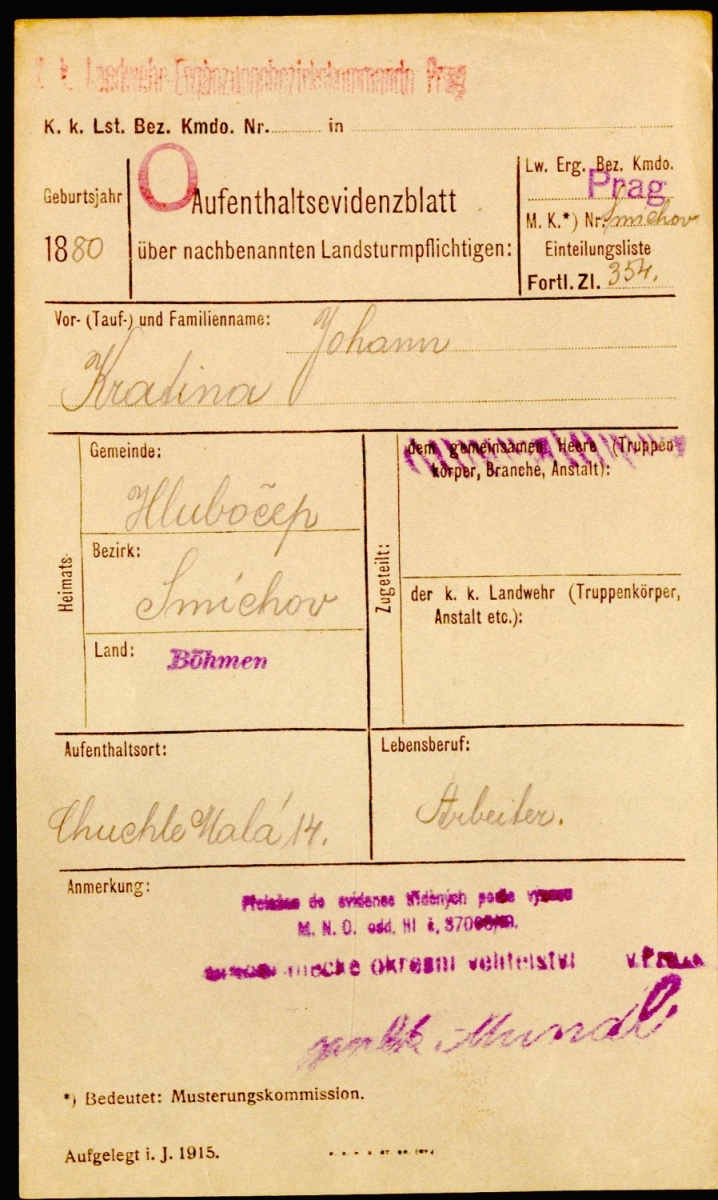 k. Landwehr-Ergänzungsbezirkskommando Prag
K. k. Lst. Bez. Kmdo. Nr. in
Geburtsjahr
1880
O
Aufenthaltsevidenzblatt
über nachbenannten Landsturmpflichtigen:
Lw. Erg. Bez. Kmdo.
Prag
M. K.*) Nr. Smichov
Einteilungsliste
Fortl. Zl. 354.
Vor- (Tauf-) und Familienname: Johann
Kratina
Heimats-
Gemeinde:
Hlubočep
Bezirk:
Smíchov
Land: Böhmen
Zugeteilt:
dem gemeinsamen Heere (Truppen-
körper, Branche, Anstalt):
der k. k. Landwehr (Truppenkörper,
Anstalt etc.):
Aufenthaltsort:
Chuchle Malá 14.
Lebensberuf:
Arbeiter.
Anmerkung:
do evidence tříděných podle
M. N. O. odd. III č,
okresní velitelství v
*) Bedeutet: Musterungskommission.
Aufgelegt i. J. 1915.